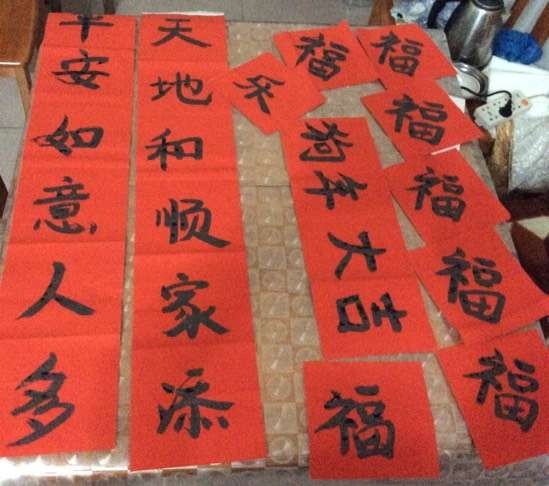 天地和顺家添
平安如意人多
乐
狗年大吉
福
福
福
福
福
福
福